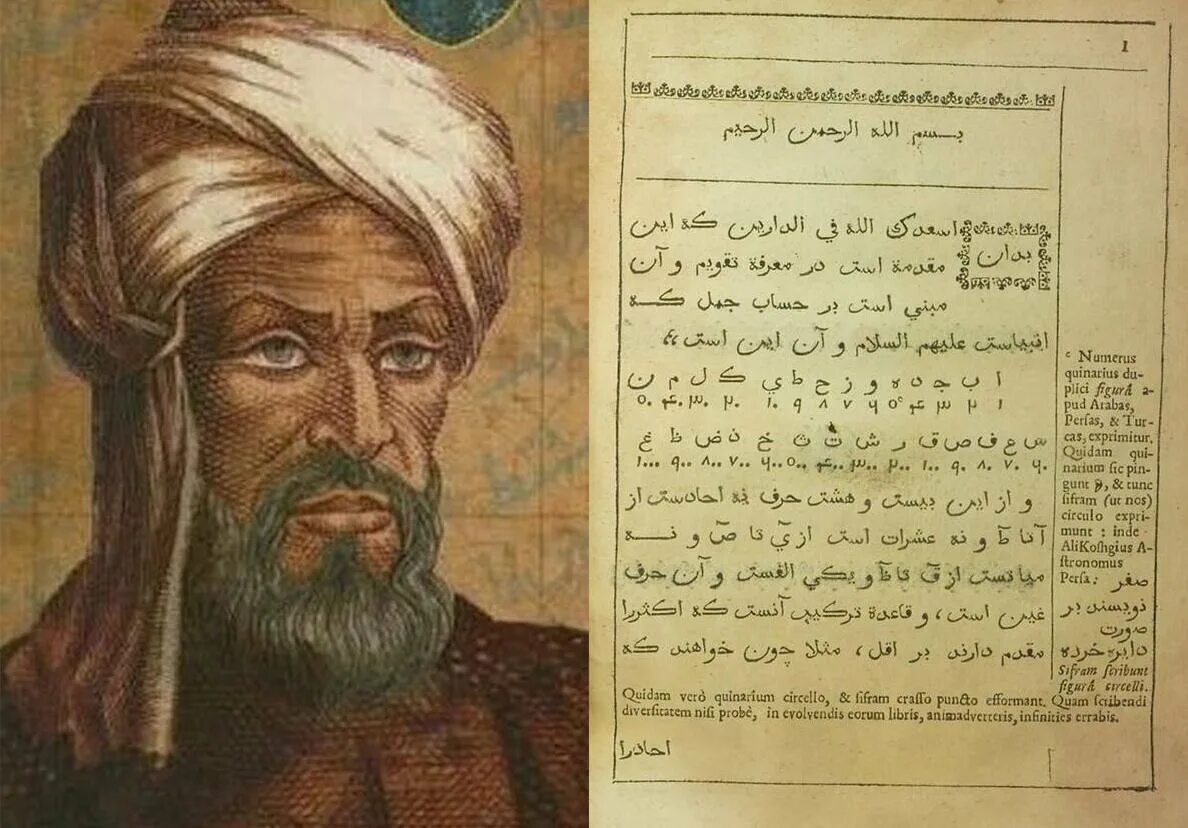 1
بسم الله الرحمن الرحيم
بدان اسعدك الله في الدارين كه اين
مقدمة است در معرفة تقويم و آن
مبني است بر حساب جمل كه
انبياست عليهم السلام و آن اين است،،
ا ب ج د ه و ز ح ط ي ك ل م ن
۱ ۲ ۳ ۴ ۵ ۶ ۷ ۸ ۹ ۱۰ ۲۰ ۳۰ ۴۰ ۵۰
س ع ف ص ق ر ش ت ث خ ذ ض ظ غ
۶۰ ۷۰ ۸۰ ۹۰ ۱۰۰ ۲۰۰ ۳۰۰ ۴۰۰ ۵۰۰ ۶۰۰ ۷۰۰ ۸۰۰ ۹۰۰ ۱۰۰۰
و از اين بيست و هشت حرف نه احادست از
آ تا ط و نه عشرات است از ي تا ص و نه
مياتست از ق تا ظ و يكي الفست و آن حرف
غين است، و قاعدة تركيب آنست كه اكثررا
مقدم دارند بر اقل، مثلا چون خواهند كه
c Numerus
quinarius du-
plici figurâ a-
pud Arabas,
Persas, & Tur-
cas, exprimitur.
Quidam qui-
narium sic pin-
gunt, & tunc
sifram (ut nos)
circulo expri-
munt : inde
AliKoshgius A-
stronomus
Persa: صفر
نويسند بر
صورت
دايره خرده
Sifram scribunt
figurâ circelli.
Quidam verò quinarium circello, & sifram crasso puncto efformant. Quam scribendi
diversitatem nisi probè, in evolvendis eorum libris, animadverteris, infinities errabis.
احادرا